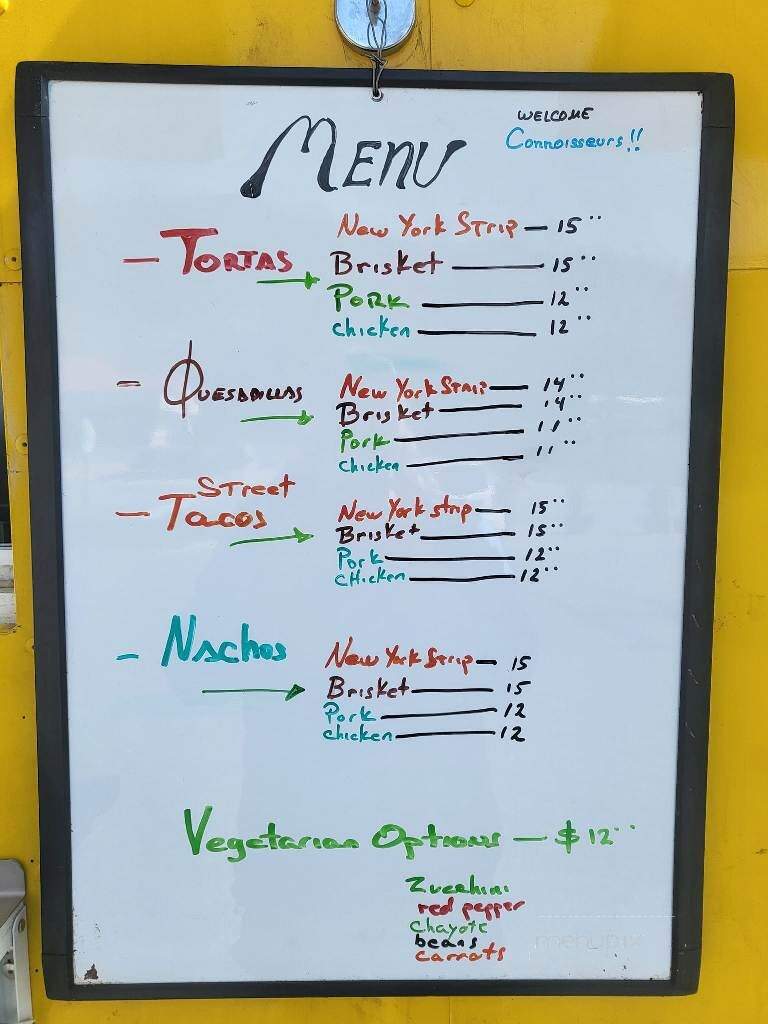 WELCOME
Connoisseurs!!
MENU
- TORTAS
New York Strip — 15..
Brisket — 15..
PORK — 12..
chicken — 12..
- QUESADILLAS
New York Strip — 14..
Brisket — 14..
Pork — 11..
chicken — 11..
- Street Tacos
New York strip — 15..
Brisket — 15..
Pork — 12..
CHicken — 12..
- Nachos
New York Strip — 15
Brisket — 15
Pork — 12
chicken — 12
Vegetarian Options — $12..
Zucchini
red pepper
chayote
beans
carrots
menupix